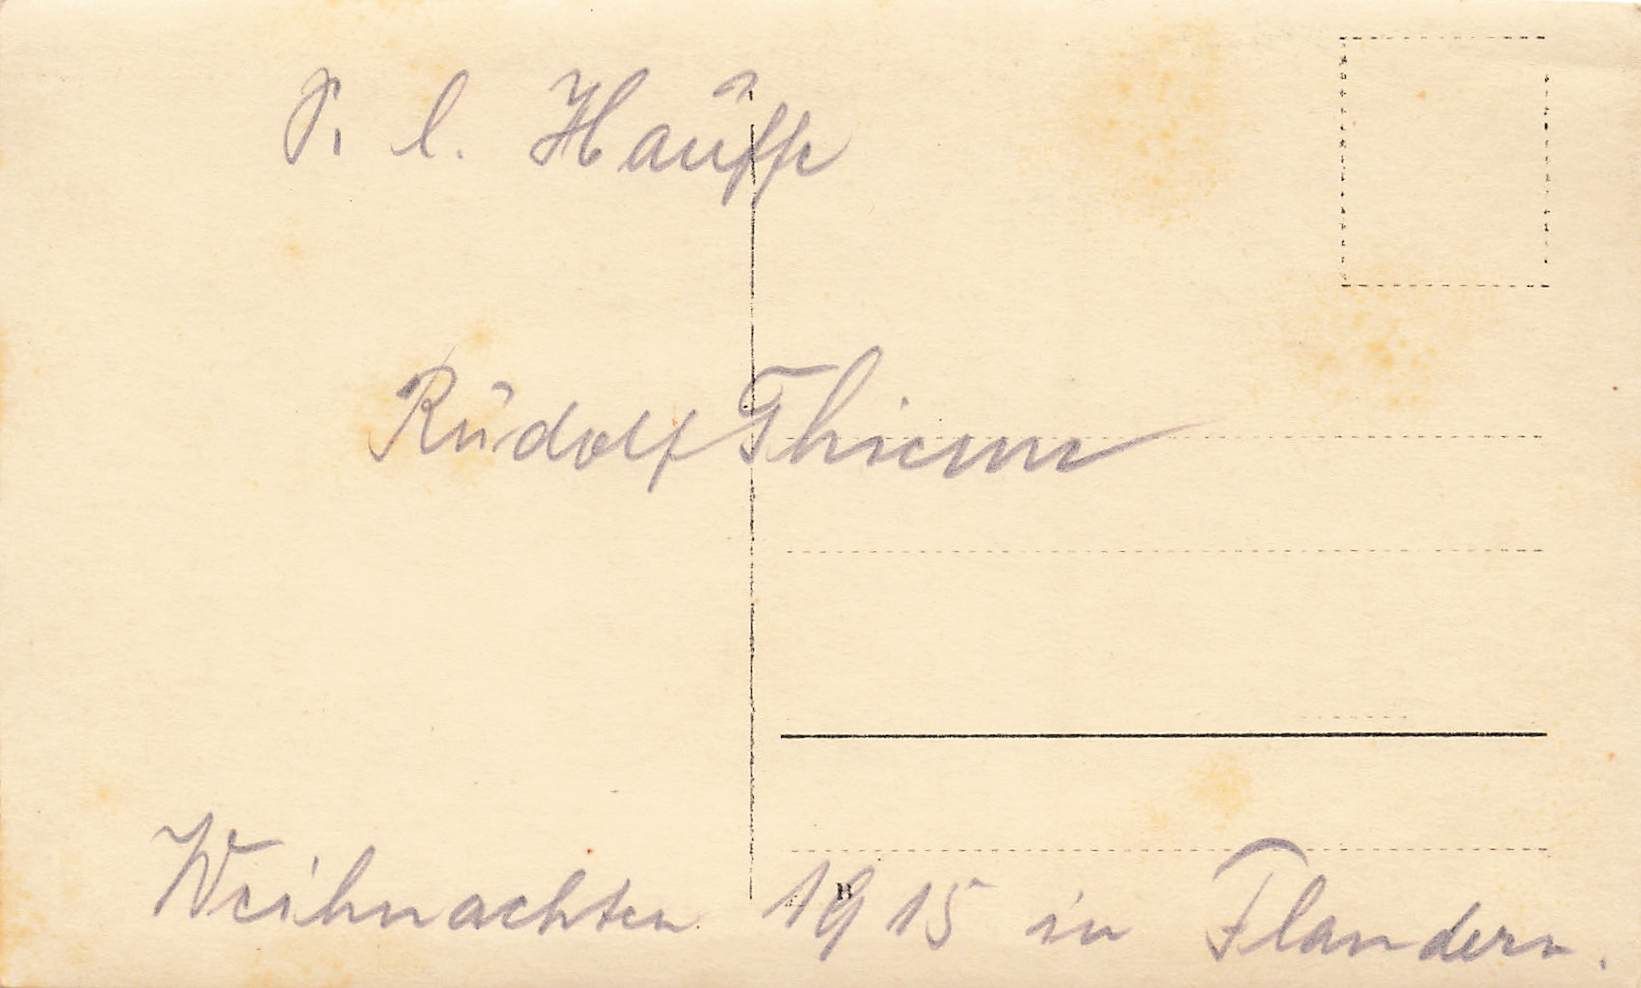 S. l. Hauffe
Rudolf Thieme
Weihnachten 1915 in Flandern.
B